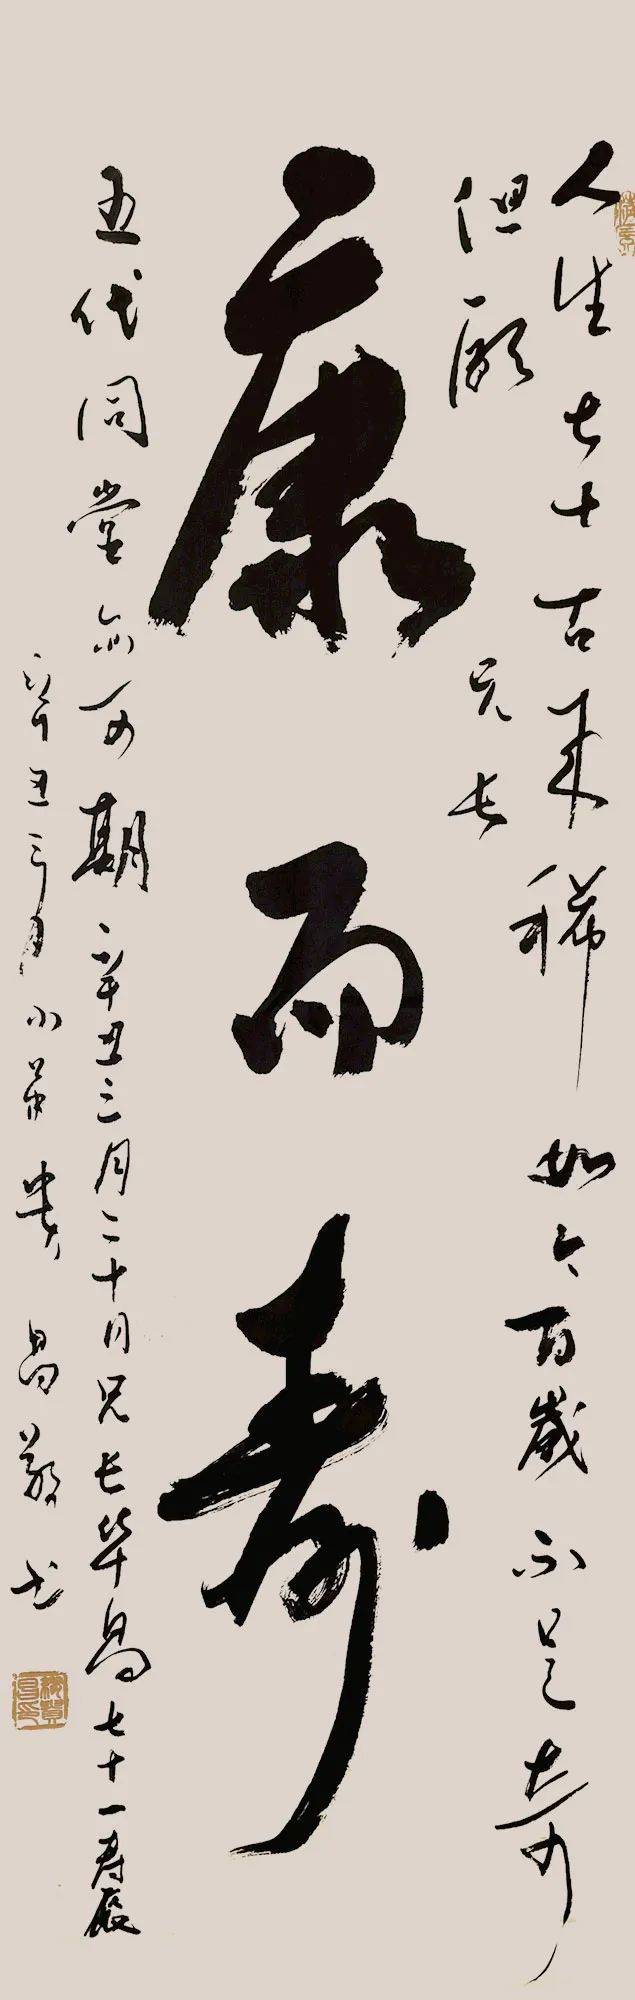 人生七十古来稀如今百岁不足奇
但愿
兄长
康而寿
五代同堂亦可期辛丑三月二十日兄长华昌七十一寿辰
辛丑三月小弟贵昌敬书